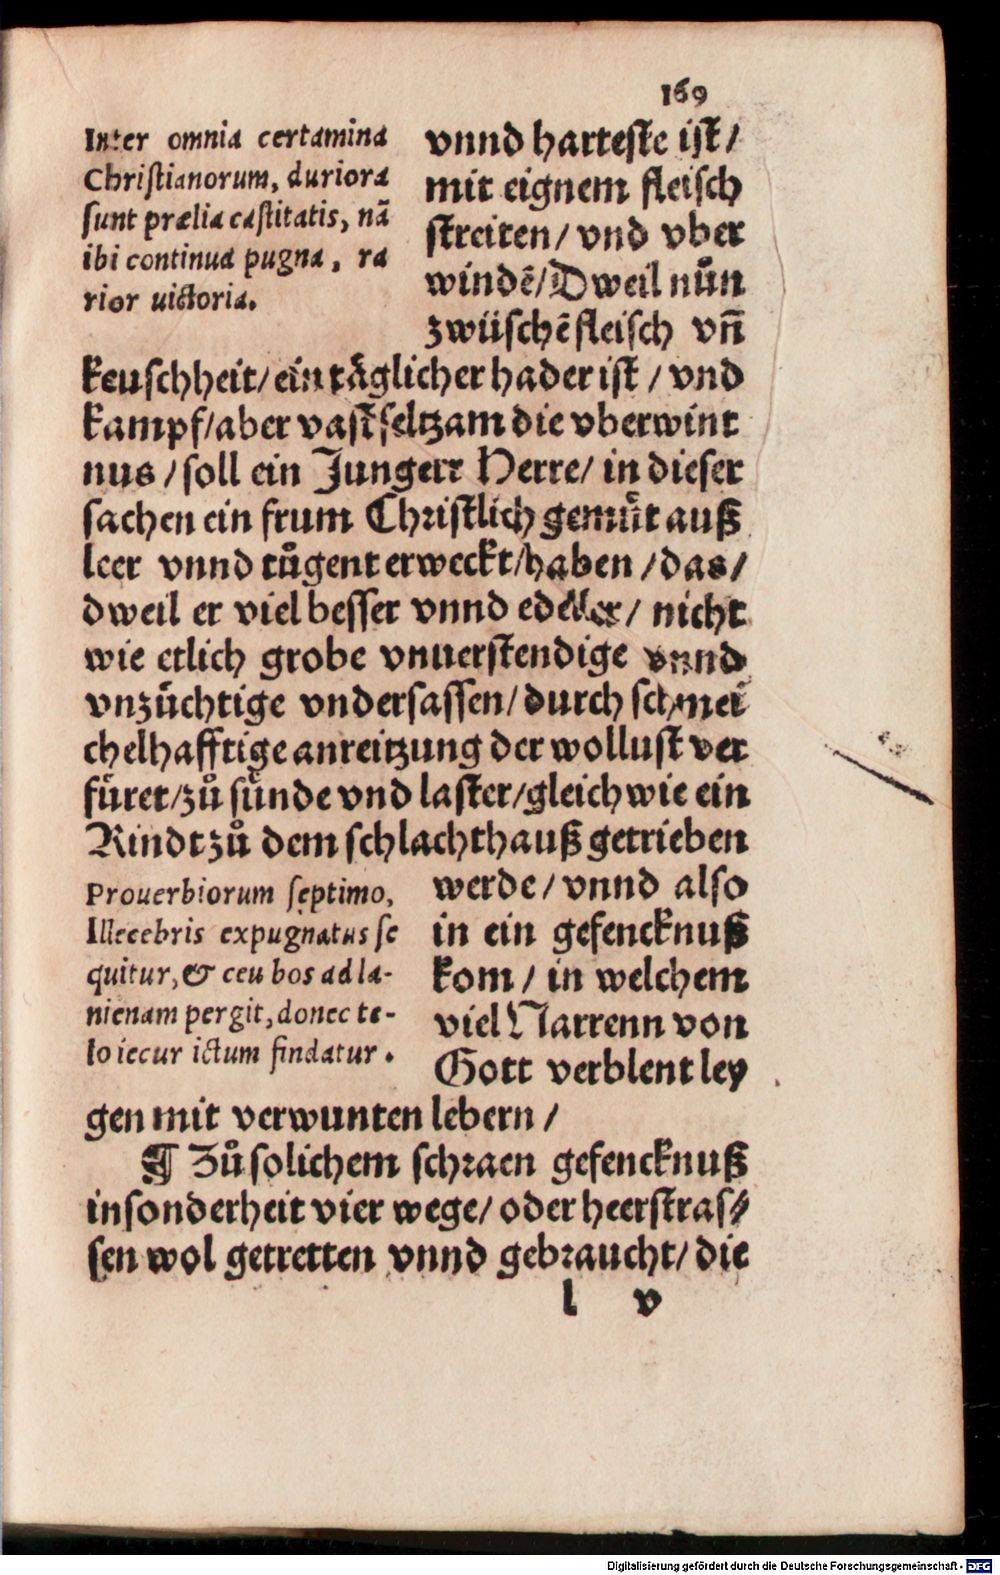 169
Inter omnia certamina
Christianorum, duriora
sunt prælia castitatis, nã
ibi continua pugna, ra
rior uictoria.
vnnd harteste ist /
mit eignem fleisch
streiten / vnd vber
windẽ / Dweil nůn
zwüschẽ fleisch vñ
keuschheit / ein täglicher hader ist / vnd
kampf / aber vast seltzam die vberwint
nus / soll ein Jungerr Herre / in dieser
sachen ein frum Christlich gemüt auß
leer vnnd tůgent erweckt / haben / das /
dweil er viel besser vnnd edeler / nicht
wie etlich grobe vnuerstendige vnnd
vnzüchtige vndersassen / durch schmei
chelhafftige anreitzung der wollust ver
füret / zů sünde vnd laster / gleich wie ein
Rindt zů dem schlachthauß getrieben
Prouerbiorum septimo,
Illecebris expugnatus se
quitur, & ceu bos ad la-
nienam pergit, donec te-
lo iecur ictum findatur.
werde / vnnd also
in ein gefencknuß
kom / in welchem
viel Narrenn von
Gott verblent ley
gen mit verwunten lebern /
¶ Zů solichem schraen gefencknuß
insonderheit vier wege / oder heerstras⸗
sen wol getretten vnnd gebraucht / die
l v
Digitalisierung gefördert durch die Deutsche Forschungsgemeinschaft - DFG